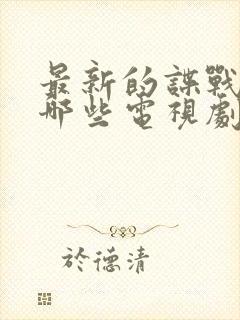 最新的諜戰
哪些電視劇
於德清